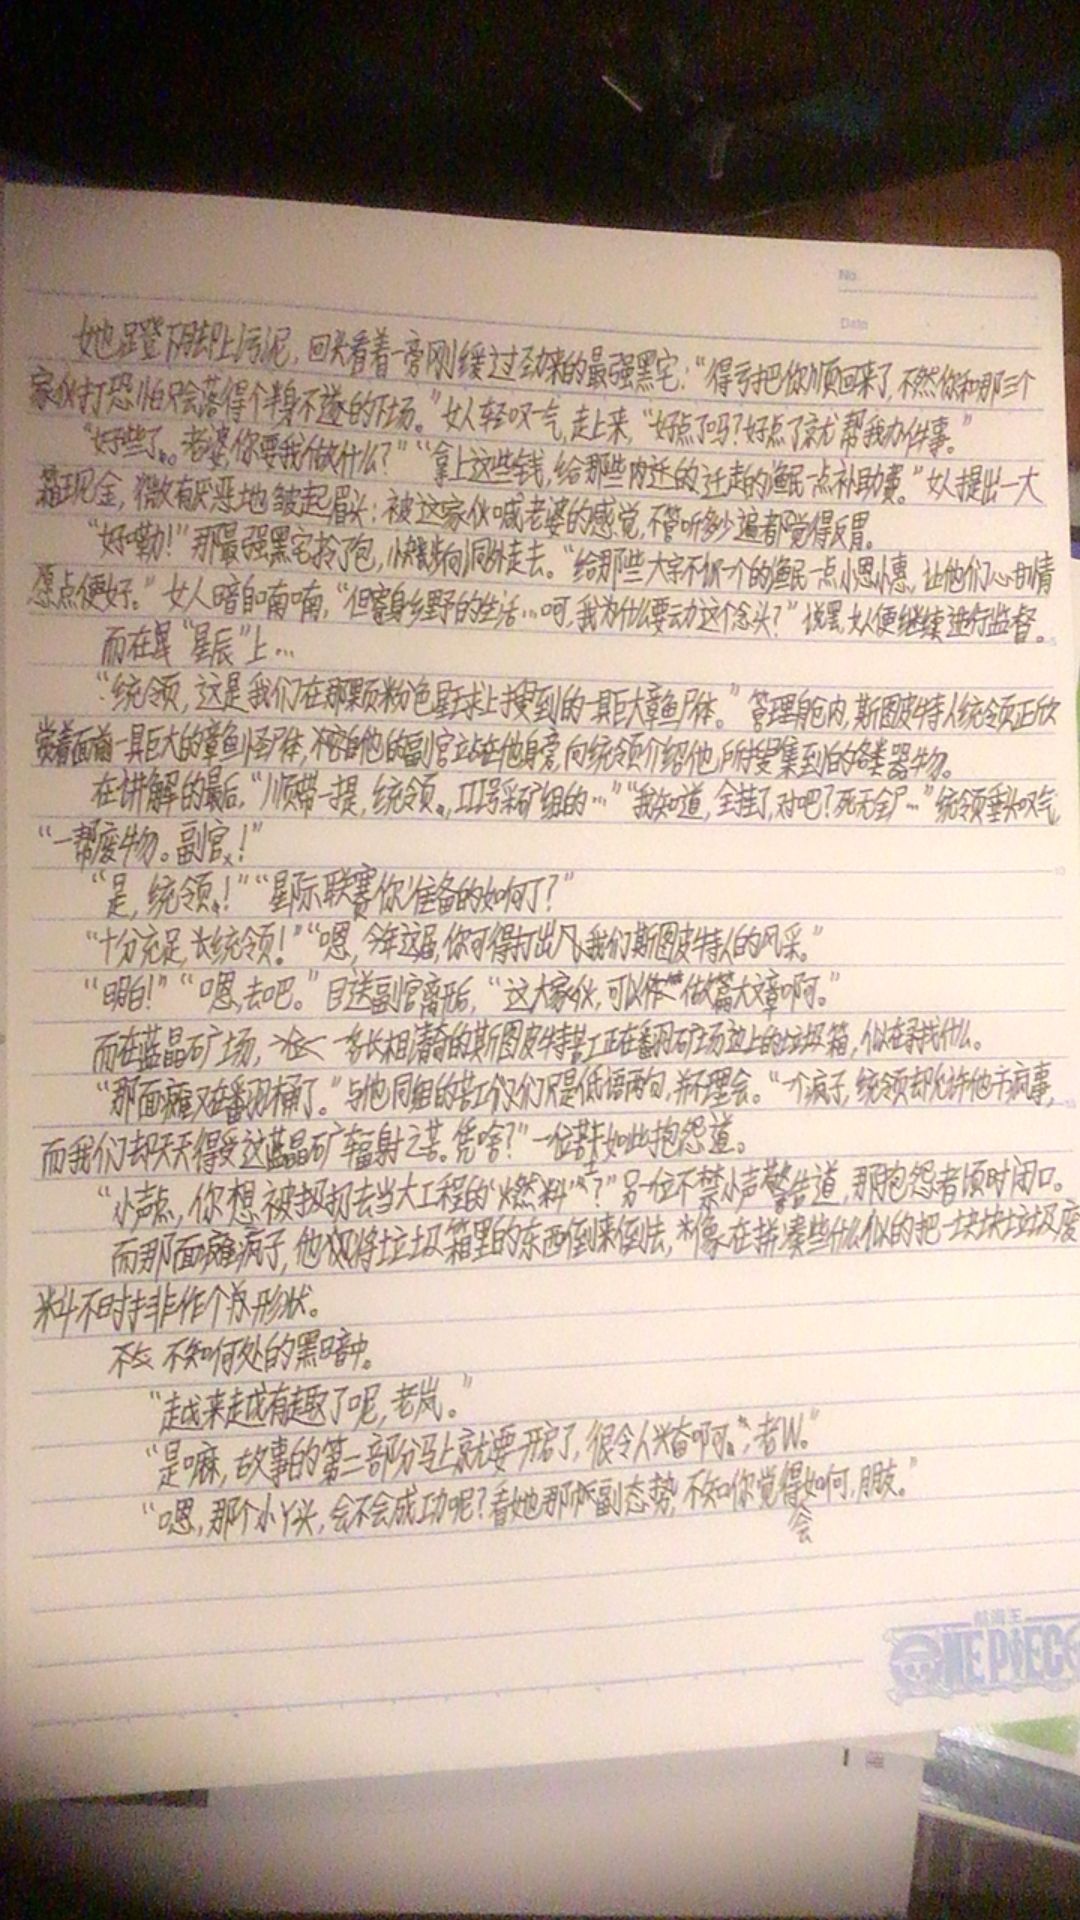 No.
Date
她蹬下脚上污泥，回头看着一旁刚缓过劲来的最强黑宅：“得亏把你顺回来了，不然你和那三个
家伙打恐怕只会落得个半身不遂的下场。”女人轻叹一气，走上来，“好点了吗？好点了就帮我办件事。”
“好些了。老婆，你要我做什么？”“拿上这些钱，给那些内迁的迁走的渔民一点补助费。”女人提出一大
箱现金，微有厌恶地皱起眉头：被这家伙喊老婆的感觉，不管听多少遍都觉得反胃。
“好嘞！”那最强黑宅拎了包，小跑向洞外走去。“给那些大字不识一个的渔民一点小恩小惠，让他们心甘情
愿点便好。”女人暗自喃喃，“但寄身乡野的生活…呵，我为什么要动这个念头？”说罢，女人便继续进行监督。
而在“星辰”上…
“统领，这是我们在那颗粉色星球上搜到的一具巨大章鱼尸体。”管理舱内，斯图皮特人统领正欣
赏着面前一具巨大的章鱼怪尸体，他的副官站在他身旁，向统领介绍他所搜集到的各类器物。
在讲解的最后，“顺带一提，统领，II号采矿组的…”“我知道，全挂了，对吧？死无全尸…”统领垂头叹气，
“一帮废物。副官！”
“是，统领！”“星际联赛你准备的如何了？”
“十分充足，统领！”“嗯，今年这届，你可得打出我们斯图皮特人的风采。”
“明白！”“嗯，去吧。”目送副官离开后，“这大家伙，可以做篇大文章啊。”
而在蓝晶矿广场，一名长相清奇的斯图皮特苦工正在翻矿场边上的垃圾箱，似在寻找什么。
“那面瘫又在翻桶了。”与他同组的苦工们只是低语两句，并不理会。“一个疯子，统领却允许他干疯事，
而我们却天天得受这蓝晶矿辐射之苦。凭啥？”一位苦工如此抱怨道。
“小声点，你想被扔去当大工程的‘燃料’吗？”另一位不禁小声警告道，那抱怨者顿时闭口。
而那面瘫疯子，他仅将垃圾箱里的东西倒来倒去，像在拼凑些什么似的把一块块垃圾废
料不时排作个形状。
不知何处的黑暗中。
“越来越有趣了呢，老岚。”
“是嘛，故事的第二部分马上就要开启了，很令人兴奋啊，老W。”
“嗯，那个小丫头，会不会成功呢？看她那副态势，不知你觉得会如何，朋友。”
航海王
ONE PIECE